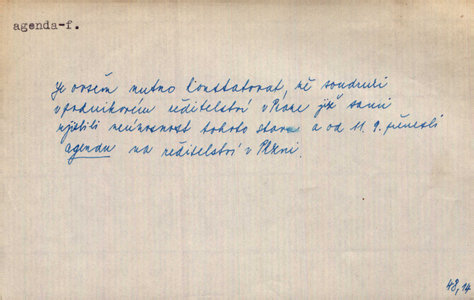 agenda-f.
Je ovšem nutno konstatovat, že soudruzi
v podnikovém ředitelství v Praze již sami
zjistili neúnosnost tohoto stavu a od 11. 9. přenesli
agendu na ředitelství v Plzni.
48,14